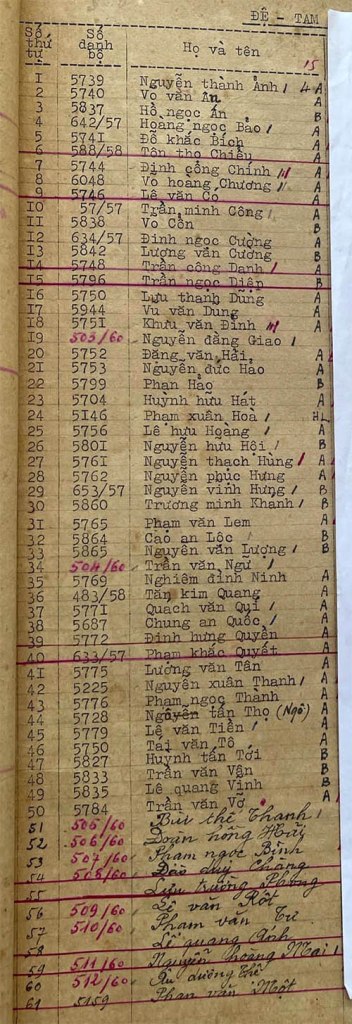 ĐỆ - TAM
Số thứ tự Số danh bộ Họ và tên 15
1 5739 Nguyễn thành Ảnh 4 A
2 5740 Vo văn Ân A
3 5837 Hồ ngọc Ẩn B
4 642/57 Hoàng ngọc Bảo A
5 5741 Đỗ khắc Bích A
6 588/58 Tôn thọ Chiểu B
7 5744 Đinh công Chính A
8 6048 Vo hoàng Chương A
9 5746 Lê văn Cỏ A
10 57/57 Trần minh Công A
11 5838 Vo Côn B
12 634/57 Đinh ngọc Cường A
13 5842 Lương văn Cương B
14 5748 Trần công Danh A
15 5796 Trần ngọc Diệp B
16 5750 Lưu thanh Dũng A
17 5944 Vu văn Dung A
18 5751 Khưu văn Đính A
19 503/60 Nguyễn đăng Giao
20 5752 Đặng văn Hải A
21 5753 Nguyễn đức Hảo A
22 5799 Phan Hảo B
23 5704 Huỳnh hữu Hát A
24 5146 Phạm xuân Hoà
25 5756 Lê hữu Hoàng A
26 5801 Nguyễn hữu Hội B
27 5761 Nguyễn thạch Hùng A
28 5762 Nguyễn phúc Hưng A
29 653/57 Nguyễn vĩnh Hưng B
30 5860 Trương minh Khanh B
31 5765 Phạm văn Lem A
32 5864 Cao an Lộc B
33 5865 Nguyễn văn Lượng B
34 504/60 Trần văn Ngư
35 5769 Nghiêm đình Ninh A
36 483/58 Tấn kim Quang A
37 5771 Quach văn Qui A
38 5687 Chung an Quốc A
39 5772 Đinh hưng Quyền A
40 633/57 Phạm khắc Quyết A
41 5775 Lương văn Tân A
42 5225 Nguyễn xuân Thanh A
43 5776 Phạm ngọc Thành A
44 5728 tấn Thọ (Ngô) A
45 5779 Lê văn Tiền A
46 5750 Tai văn Tô A
47 5827 Huỳnh tấn Tới B
48 5833 Trần văn Vận B
49 5835 Lê quang Vinh B
50 5784 Trần văn Vỡ A
51 505/60 Bùi thế Thanh
52 506/60 Đoàn hồng Hải
53 507/60 Phạm ngọc Bình
54 508/60 Đào duy Chàng
55 Lưu trường Phương
56 509/60 Lê văn Rột
57 510/60 Phạm văn Tư
58 Lê quang Ánh
59 511/60 Nguyễn hoàng Mai
60 512/60 Âu dương Thế
61 5159 Phan văn Một